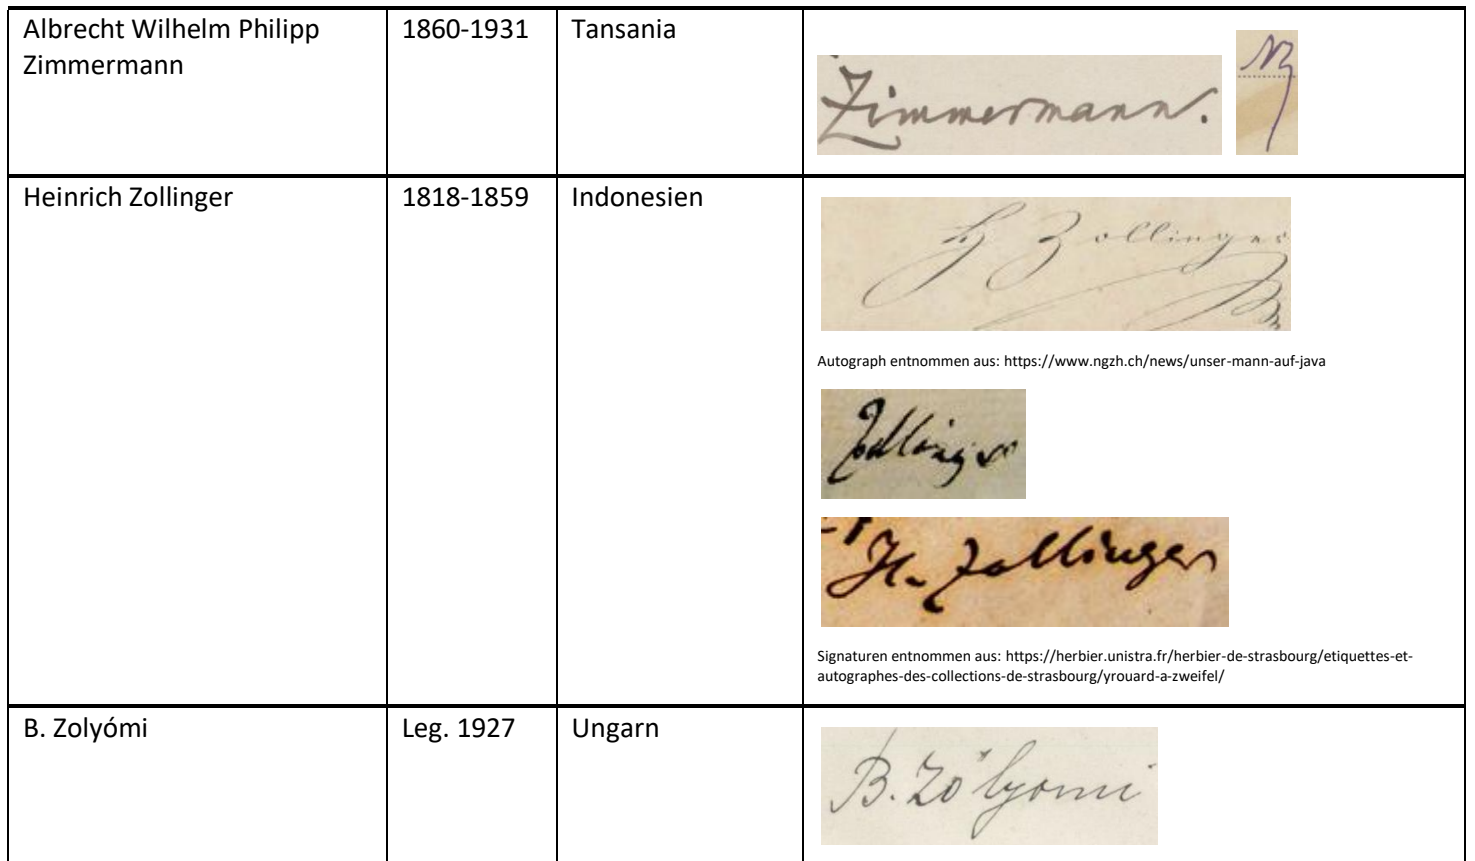 Albrecht Wilhelm Philipp
Zimmermann
1860-1931
Tansania
Zimmermann.
Heinrich Zollinger
1818-1859
Indonesien
H Zollinger
Autograph entnommen aus: https://www.ngzh.ch/news/unser-mann-auf-java
Zollinger
H. Zollinger
Signaturen entnommen aus: https://herbier.unistra.fr/herbier-de-strasbourg/etiquettes-et-
autographes-des-collections-de-strasbourg/yrouard-a-zweifel/
B. Zolyómi
Leg. 1927
Ungarn
B. Zólyomi